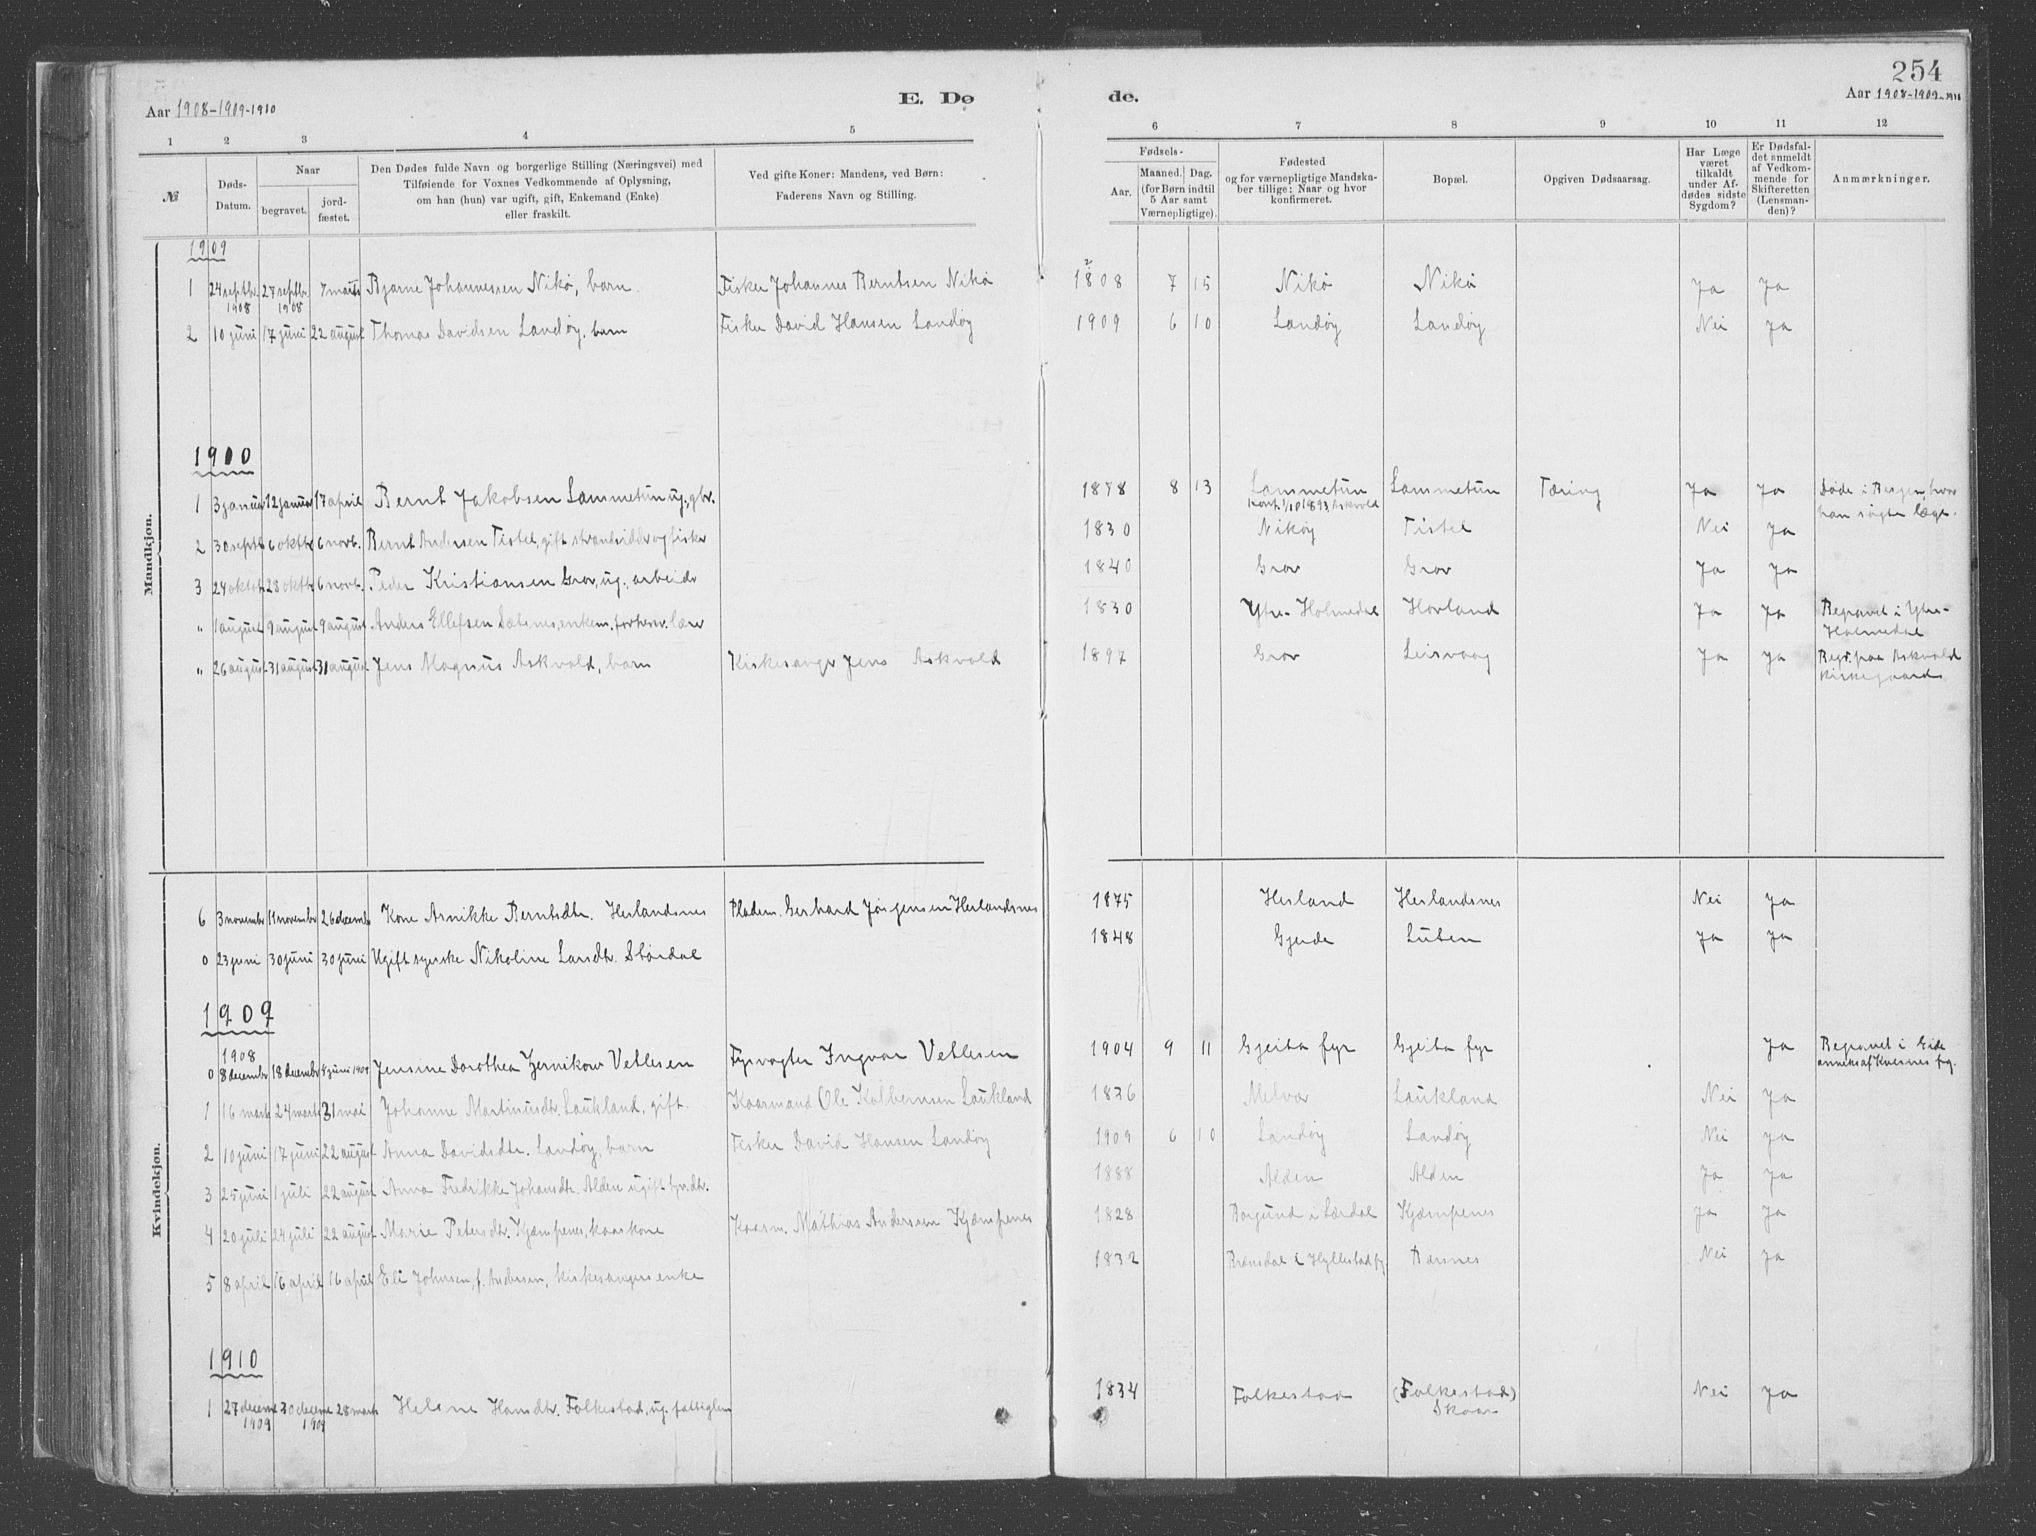 254
Aar 1908-1909-1910 E. Dø de. Aar 1908-1909-1910
1 2 3 4 5 6 7 8 9 10 11 12
№
Døds-
Datum.
Naar
begravet.
jord-
fæstet.
Den Dødes fulde Navn og borgerlige Stilling (Næringsvei) med
Tilføiende for Voxnes Vedkommende af Oplysning,
om han (hun) var ugift, gift, Enkemand (Enke)
eller fraskilt.
Ved gifte Koner: Mandens, ved Børn:
Faderens Navn og Stilling.
Fødsels-
Aar.
Maaned. Dag.
(for Børn indtil
5 Aar samt
Værnepligtige).
Fødested
og for værnepligtige Mandska-
ber tillige: Naar og hvor
konfirmeret.
Bopæl.
Opgiven Dødsaarsag.
Har Læge
været
tilkaldt
under Af-
dødes sidste
Sygdom?
Er Dødsfal-
det anmeldt
af Vedkom-
mende for
Skifteretten
(Lensman-
den)?
Anmærkninger.
Mandkjøn.
1909
1 24 septbr. 27 septbr. 7 marts Bjarne Johannessen Nikø, barn. Fisker Johannes Berntsen Nikø 1808 7 15 Nikø Nikø Ja Ja
1908 1908
2 10 juni 17 juni 22 august Thomas Davidsen Landøy, barn Fisker David Hansen Landøy 1909 6 10 Landøy Landøy Nei Ja
1900
1 3 januar 12 januar 17 april Bernt Jakobsen Lammetun ug., gbr. 1878 8 13 Lammetun Lammetun Tæring Ja Ja Døde i Bergen, hvor
Konf. 1/10 1893, Askvold han søgte læge.
2 30 septb 6 oktbr 6 novb. Bernt Andersen Tistel, gift strandsidder og fisker 1830 Nikøy Tistel Nei Ja
3 24 oktob. 28 oktbr 6 novb. Peder Kristiansen Grov, ug., arbeidr 1840 Grov Grov Ja Ja
" 1 august 9 august 9 august Anders Ellefsen enkem. forhenv. lærer 1830 Ytre-Holmedal Hovland Ja Ja Begravet i Ytre-
Holmedal
" 26 august 31 august 31 august Jens Magnus Askvold, barn Kirkesanger Jens Askvold 1897 Grov Leirvaag Ja Ja Begr. paa Askvold
kirkegaard
Kvindekjøn.
6 3 novembr 11 novembr 26 decemb Kone Annikke Berntsdtr. Herlandsnes Pladsm. Gerhard Jørgensen Herlandsnes 1875 Herland Herlandsnes Nei Ja
0 23 juni 30 juni 30 juni Ugift syerske Nikoline Larsdtr. Størdal 1848 Gjerde Luten Ja Ja
1909
1908
0 8 decembr 18 decembr 4 juni 1909 Jensine Dorothea Zernikow Vetlesen Fyrvogter Ingvar Vetlesen 1904 9 11 Gjeita fyr Gjeita fyr Ja Begravet i Eide
anneks af Kvernes pg.
1 16 marts 24 marts 31 mai Johanne Martinusdtr. Laukland, gift. Kaarmand Ole Kolbernsen Laukland 1836 Melvær Laukland Nei Ja
2 10 juni 17 juni 22 august Anna Davidsdtr. Landøy, barn Fisker David Hansen Landøy 1909 6 10 Landøy Landøy Nei Ja
3 25 juni 1 juli 22 august Anna Fredrikke Johansdtr. Alden ugift 1888 Alden Alden Ja Ja
4 20 juli 24 juli 22 august Marie Petersdtr. Kjempenes, kaarkone Kaarm. Mathias Andersen Kjempenes 1828 Borgund i Lærdal Kjempenes Ja Ja
5 8 april 16 april 16 april Eli Johnsen, f. Andersen, kirkesangers enke 1832 i Hyllestad pg. Barsnes Nei Ja
1910
1 27 decemb 30 decemb 28 marts Helene Hansdtr. Folkestad, ug. fattiglem 1834 Folkestad (Folkestad) Nei Ja
1909 1909 Skaar